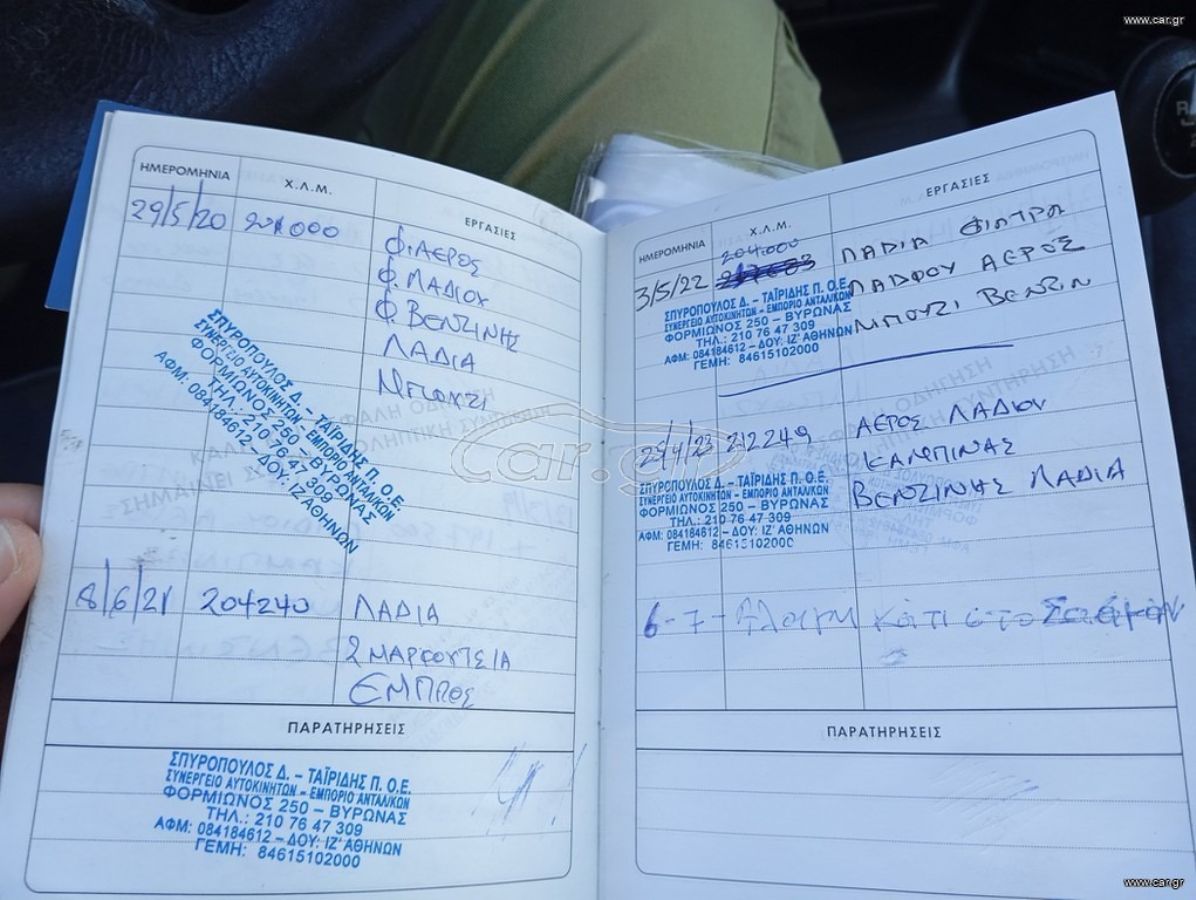 www.car.gr
ΗΜΕΡΟΜΗΝΙΑ Χ.Λ.Μ. ΕΡΓΑΣΙΕΣ
29/5/20 201000 Φ. ΑΕΡΟΣ
Φ. ΛΑΔΙΟΥ
Φ. ΒΕΝΖΙΝΗΣ
ΛΑΔΙΑ
ΜΠΟΥΖΙ
ΣΠΥΡΟΠΟΥΛΟΣ Δ. – ΤΑΪΡΙΔΗΣ Π. Ο.Ε.
ΣΥΝΕΡΓΕΙΟ ΑΥΤΟΚΙΝΗΤΩΝ – ΕΜΠΟΡΙΟ ΑΝΤΑΛ/ΚΩΝ
ΦΟΡΜΙΩΝΟΣ 250 – ΒΥΡΩΝΑΣ
ΤΗΛ.: 210 76 47 309
ΑΦΜ: 084184612 – ΔΟΥ: ΙΖ' ΑΘΗΝΩΝ
8/6/21 204240 ΛΑΔΙΑ
2 ΜΑΡΣΟΥΤΣΙΑ
ΕΜΠΡΟΣ
ΠΑΡΑΤΗΡΗΣΕΙΣ
ΣΠΥΡΟΠΟΥΛΟΣ Δ. – ΤΑΪΡΙΔΗΣ Π. Ο.Ε.
ΣΥΝΕΡΓΕΙΟ ΑΥΤΟΚΙΝΗΤΩΝ – ΕΜΠΟΡΙΟ ΑΝΤΑΛ/ΚΩΝ
ΦΟΡΜΙΩΝΟΣ 250 – ΒΥΡΩΝΑΣ
ΤΗΛ.: 210 76 47 309
ΑΦΜ: 084184612 – ΔΟΥ: ΙΖ' ΑΘΗΝΩΝ
ΓΕΜΗ: 84615102000
ΗΜΕΡΟΜΗΝΙΑ Χ.Λ.Μ. ΕΡΓΑΣΙΕΣ
204.000
3/5/22 ΛΑΔΙΑ ΦΙΛΤΡΑ
ΑΕΡΟΣ
ΜΠΟΥΖΙ ΒΕΝΖΙΝ
ΣΠΥΡΟΠΟΥΛΟΣ Δ. – ΤΑΪΡΙΔΗΣ Π. Ο.Ε.
ΣΥΝΕΡΓΕΙΟ ΑΥΤΟΚΙΝΗΤΩΝ – ΕΜΠΟΡΙΟ ΑΝΤΑΛ/ΚΩΝ
ΦΟΡΜΙΩΝΟΣ 250 – ΒΥΡΩΝΑΣ
ΤΗΛ.: 210 76 47 309
ΑΦΜ: 084184612 – ΔΟΥ: ΙΖ' ΑΘΗΝΩΝ
ΓΕΜΗ: 84615102000
25/4/23 212249 ΑΕΡΟΣ ΛΑΔΙΟΥ
ΚΑΜΠΙΝΑΣ
ΒΕΝΖΙΝΗΣ ΛΑΔΙΑ
ΣΠΥΡΟΠΟΥΛΟΣ Δ. – ΤΑΪΡΙΔΗΣ Π. Ο.Ε.
ΣΥΝΕΡΓΕΙΟ ΑΥΤΟΚΙΝΗΤΩΝ – ΕΜΠΟΡΙΟ ΑΝΤΑΛ/ΚΩΝ
ΦΟΡΜΙΩΝΟΣ 250 – ΒΥΡΩΝΑΣ
ΤΗΛ.: 210 76 47 309
ΑΦΜ: 084184612 – ΔΟΥ: ΙΖ' ΑΘΗΝΩΝ
ΓΕΜΗ: 84615102000
6-7- Αλλαγή κάτι στο
ΠΑΡΑΤΗΡΗΣΕΙΣ
car.gr
www.car.gr